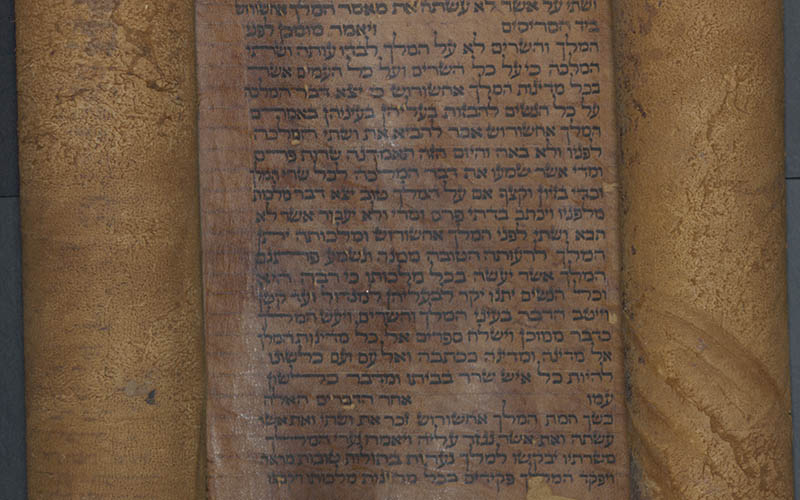 ושתי על אשר לא עשתה את מאמר המלך אחשורוש
ביד הסריסים ויאמר מומכן לפני
המלך והשרים לא על המלך לבדו עותה ושתי
המלכה כי על כל השרים ועל כל העמים אשר
בכל מדינות המלך אחשורוש כי יצא דבר המלכה
על כל הנשים להבזות בעליהן בעיניהן באמרם
המלך אחשורוש אמר להביא את ושתי המלכה
לפניו ולא באה והיום הזה תאמרנה שרות פרס
ומדי אשר שמעו את דבר המלכה לכל שרי המלך
וכדי בזיון וקצף אם על המלך טוב יצא דבר מלכות
מלפניו ויכתב בדתי פרס ומדי ולא יעבור אשר לא
תבא ושתי לפני המלך אחשורוש ומלכותה יתן
המלך לרעותה הטובה ממנה ונשמע פתגם
המלך אשר יעשה בכל מלכותו כי רבה היא
וכל הנשים יתנו יקר לבעליהן למגדול ועד קטן
וייטב הדבר בעיני המלך והשרים ויעש המלך
כדבר ממוכן וישלח ספרים אל כל מדינות המלך
אל מדינה ומדינה ככתבה ואל עם ועם כלשונו
להיות כל איש שרר בביתו ומדבר כלשון
עמו אחר הדברים האלה
כשך חמת המלך אחשורוש זכר את ושתי ואת אשר
עשתה ואת אשר נגזר עליה ויאמרו נערי המלך
משרתיו יבקשו למלך נערות בתולות טובות מראה
ויפקד המלך פקידים בכל מדינות מלכותו ויקבצו